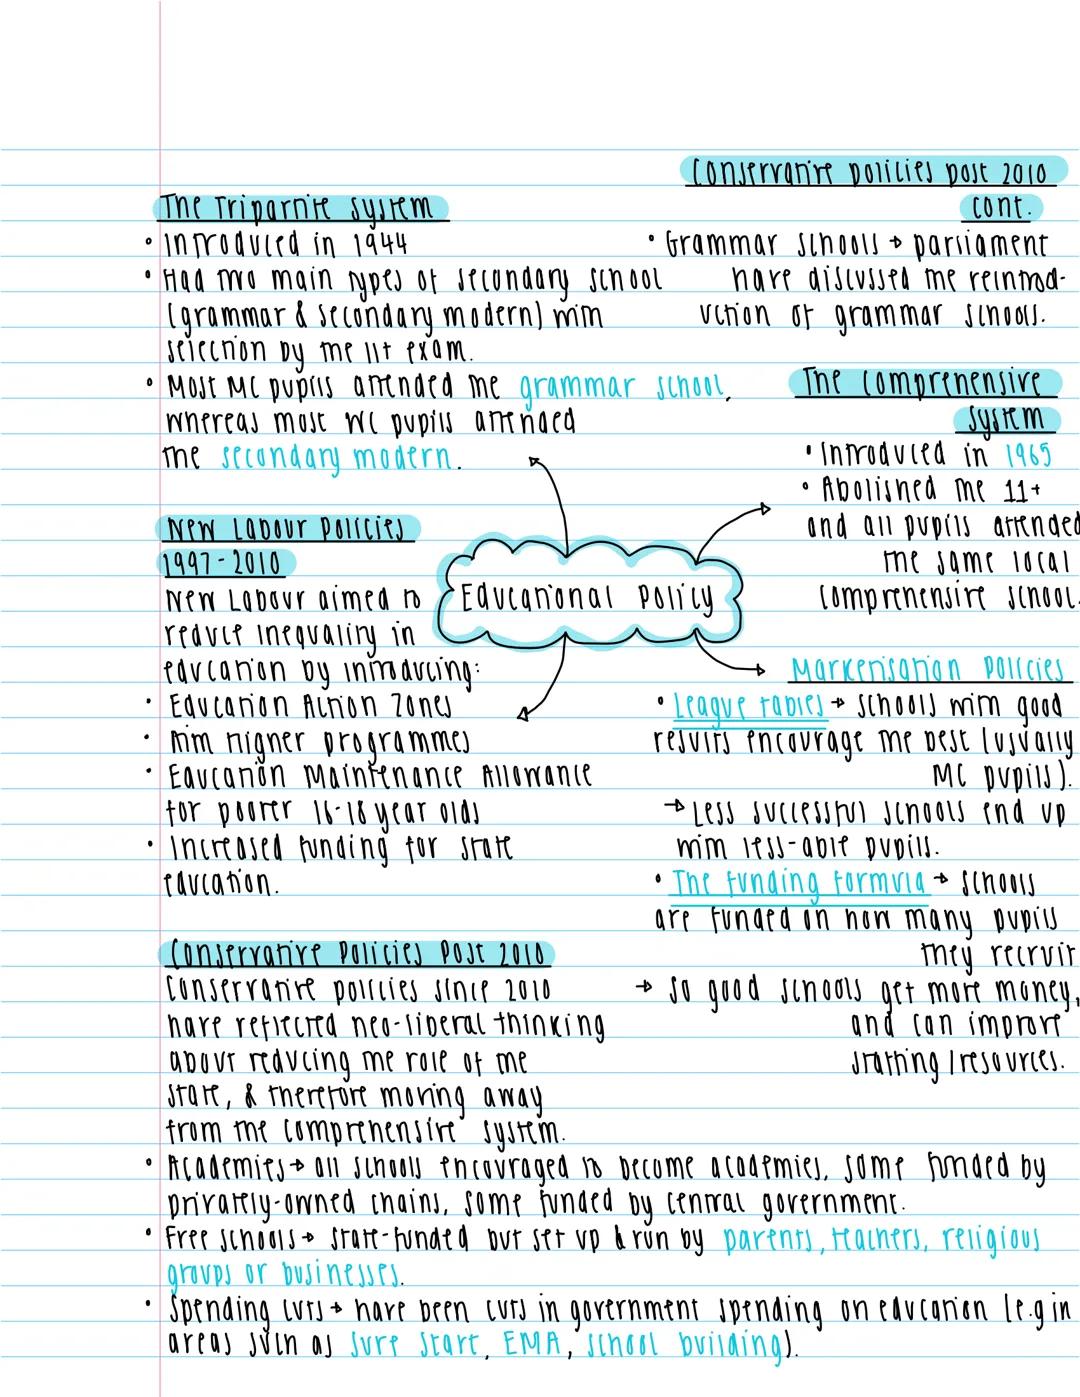 The Tripartite System
• Introduced in 1944
• Had two main types of secondary school
(grammar & secondary modern) with
selection by the 11+ exam.
• Most MC pupils attended the grammar school,
whereas most WC pupils attended
the secondary modern.
New Labour Policies
1997-2010
New Labour aimed to
reduce inequality in
education by introducing:
• Education Action Zones
• Aim Higher programmes
• Education Maintenance Allowance
for poorer 16-18 year olds
• Increased funding for state
education.
Educational Policy
Conservative policies post 2010
cont.
• Grammar schools → parliament
have discussed the reintrod-
uction of grammar schools.
The Comprehensive
System
• Introduced in 1965
• Abolished the 11+
and all pupils attended
the same local
comprehensive school.
Marketisation Policies
• League tables → schools with good
results encourage the best (usually
MC pupils).
→ Less successful schools end up
with less-able pupils.
• The funding formula → schools
are funded on how many pupils
they recruit
→ so good schools get more money,
and can improve
staffing/resources.
Conservative Policies Post 2010
Conservative policies since 2010
have reflected neo-liberal thinking
about reducing the role of the
state, & therefore moving away
from the comprehensive system.
• Academies → all schools encouraged to become academies, some funded by
privately-owned chains, some funded by central government.
• Free schools → state-funded but set up & run by parents, teachers, religious
groups or businesses.
• Spending cuts → have been cuts in government spending on education (e.g in
areas such as Sure Start, EMA, school building).